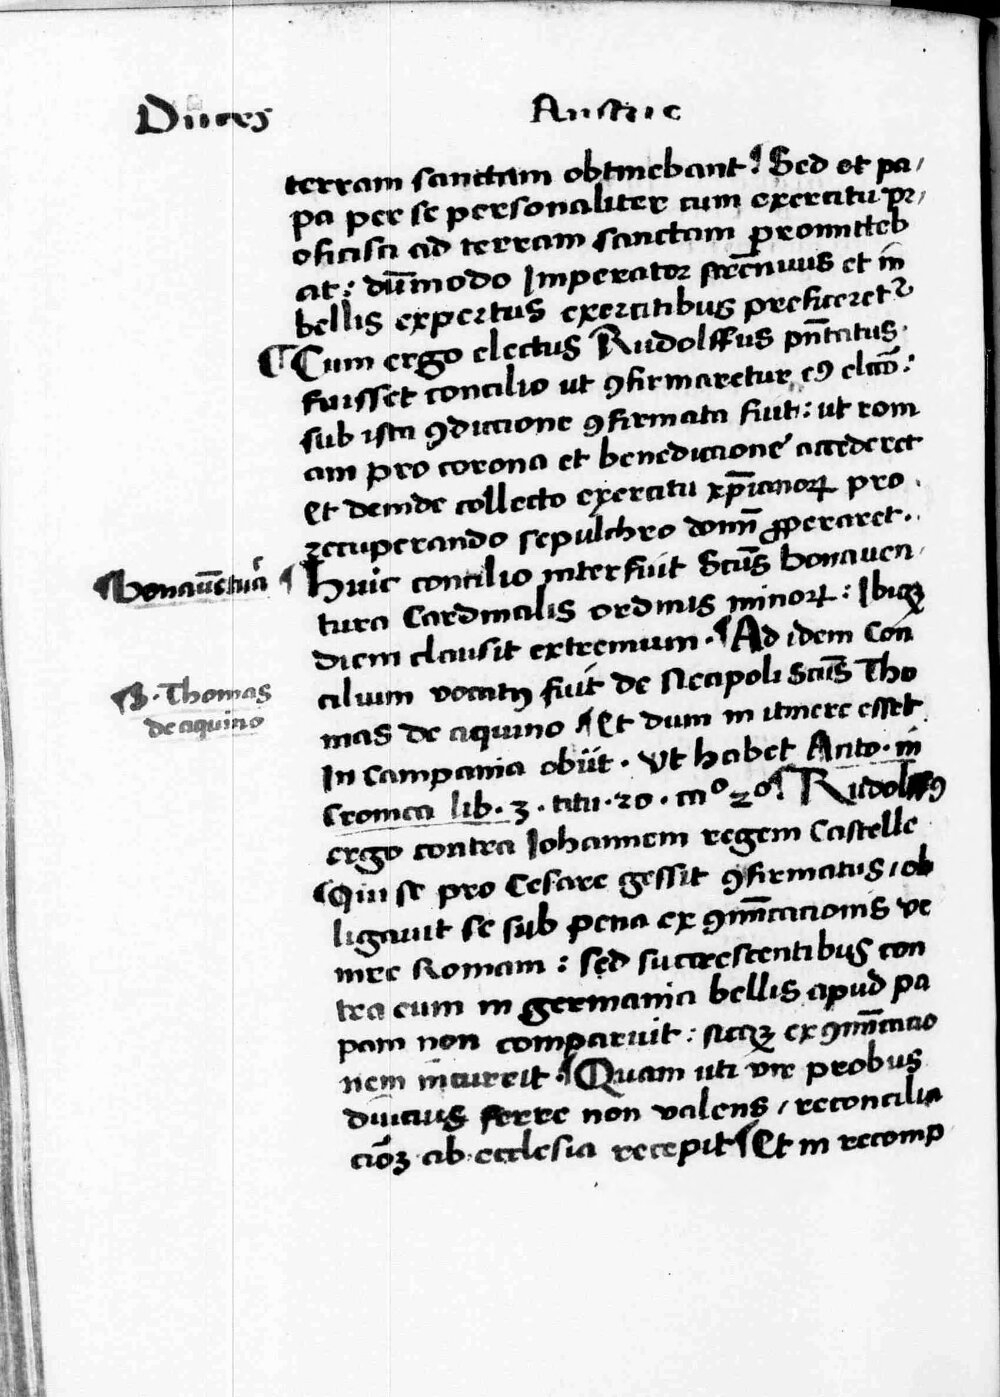 Duces Austrie
terram sanctam obtinebant: Sed et pa,
pa per se personaliter cum exercitu pr,
oficisci ad terram sanctam promitteb
at: dūmodo Imperator strēnuus et in
bellis expertus exercitibus preficeretꝛ
¶ Cum ergo electus Rudolffus pn̄tatus
fuisset concilio ut ꝯfirmaretur eꝰ elcō:
sub ista ꝯdicione ꝯfirmata fuit: ut rom
am pro corona et benedicione accederet
et deinde collecto exercitu xp̄ianoꝝ pro
recuperando sepulchro domī ꝓperaret.
Bonauētura ¶ Huic concilio interfuit Sctūs bonauen,
tura Cardinalis ordinis minoꝝ: Ibiqꝫ
diem clausit extremum. ¶ Ad idem Con
cilium vocatꝰ fuit de Neapoli Sctūs Tho
¶ B. Thomas
de aquino
mas de aquino ¶ Et dum in itinere esset
In Campania obiit. Vt habet Anto. in
Cronica lib. 3. titu. 20. caº 2º ¶ Rudolffꝰ
ergo contra Johannem regem Castelle
¶ Qui se pro Cesare gessit ꝯfirmatus, ob
ligauit se sub pena exꝯmn̄icacionis ve
nire Romam: sed succrescentibus con
tra eum in germania bellis apud pa
pam non comparuit: sicqꝫ exꝯmn̄icacio
nem incurrit. ¶ Quam uti vir probus
diucius ferre non valens, reconcilia
ciōꝫ ab ecclesia recepit ¶ Et in recomp